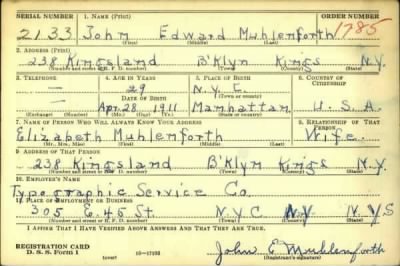 SERIAL NUMBER 1. NAME (Print) ORDER NUMBER
2133 John Edward Muhlenforth 1785
(First) (Middle) (Last)
2. ADDRESS (Print)
238 Kingsland B'Klyn Kings N.Y.
(Number and street or R. F. D. number) (Town) (County) (State)
3. TELEPHONE 4. AGE IN YEARS 5. PLACE OF BIRTH 6. COUNTRY OF CITIZENSHIP
— 29 N.Y.C.
DATE OF BIRTH (Town or county)
— Apr. 28 1911 Manhattan U.S.A.
(Exchange) (Number) (Mo.) (Day) (Yr.) (State or country)
7. NAME OF PERSON WHO WILL ALWAYS KNOW YOUR ADDRESS 8. RELATIONSHIP OF THAT PERSON
Elizabeth Muhlenforth Wife
(Mr., Mrs., Miss) (First) (Middle) (Last)
9. ADDRESS OF THAT PERSON
238 Kingsland B'Klyn Kings N.Y.
(Number and street or R. F. D. number) (Town) (County) (State)
10. EMPLOYER'S NAME
Typographic Service Co.
11. PLACE OF EMPLOYMENT OR BUSINESS
305 E. 45 St. N.Y.C NY N.Y.S
(Number and street or R. F. D. number) (Town) (County) (State)
I AFFIRM THAT I HAVE VERIFIED ABOVE ANSWERS AND THAT THEY ARE TRUE.
REGISTRATION CARD
D. S. S. Form 1 (over) John E Muhlenforth
(Registrant's signature)